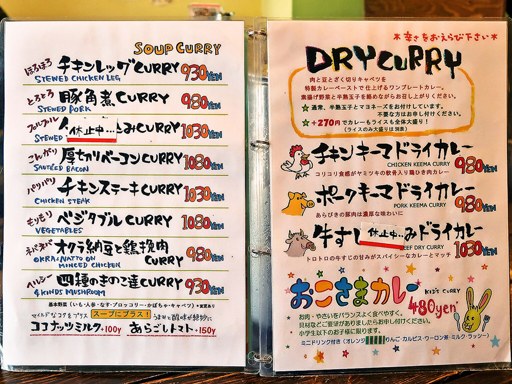 SOUP CURRY
ほろほろ チキンレッグCURRY 930YEN
STEWED CHICKEN LEG
とろとろ 豚角煮CURRY 980YEN
STEWED PORK
休止中… こみCURRY 1030YEN
STEWED
こんがり 厚切りベーコンCURRY 1080YEN
SAUTEED BACON
パリパリ チキンステーキCURRY 1030YEN
CHICKEN STEAK
もっもり ベジタブルCURRY 1030YEN
VEGETABLES
ネバネバ オクラ納豆と鶏挽肉CURRY 980YEN
OKRA・NATTO ON MINCED CHICKEN
ヘルシー 四種のきのこ達CURRY 930YEN
4 KINDS MUSHROOM
基本野菜(いも・人参・なす・ブロッコリー・かぼちゃ・キャベツ)
スープにプラス!
ココナッツミルク・+100y あらごしトマト・+150y
*辛さをおえらび下さい*
DRY CURRY
肉と豆とざく切りキャベツを
特製カレーペーストで仕上げるワンプレートカレー。
素揚げ野菜と半熟玉子を絡めながらお召し上がりください。
☆通常、半熟玉子とマヨネーズをお付けしています。
不要な方はお申し付けください。
☆+270円でカレーもライスも全体大盛り!
(ライスのみ大盛りは別途)
チキンキーマドライカレー 980YEN
CHICKEN KEEMA CURRY
コリコリ食感がヤミツキの軟骨入り鶏ひき肉カレー
ポークキーマドライカレー 980YEN
PORK KEEMA CURRY
あらびきの豚肉は濃厚な味わいに
牛すじ 休止中… みドライカレー 1030YEN
BEEF DRY CURRY
トロトロの牛すじの甘みがスパイシーなカレーとマッチ
おこさまカレー KID'S CURRY
480yen
お肉・やさいをバランスよく食べやすく。
具材などご要望がありましたらお申し付けください。
小学生以下のお子様に限ります。
ミニドリンク付き(オレンジ りんご・カルピス・ウーロン茶・ミルク・ラッシー)